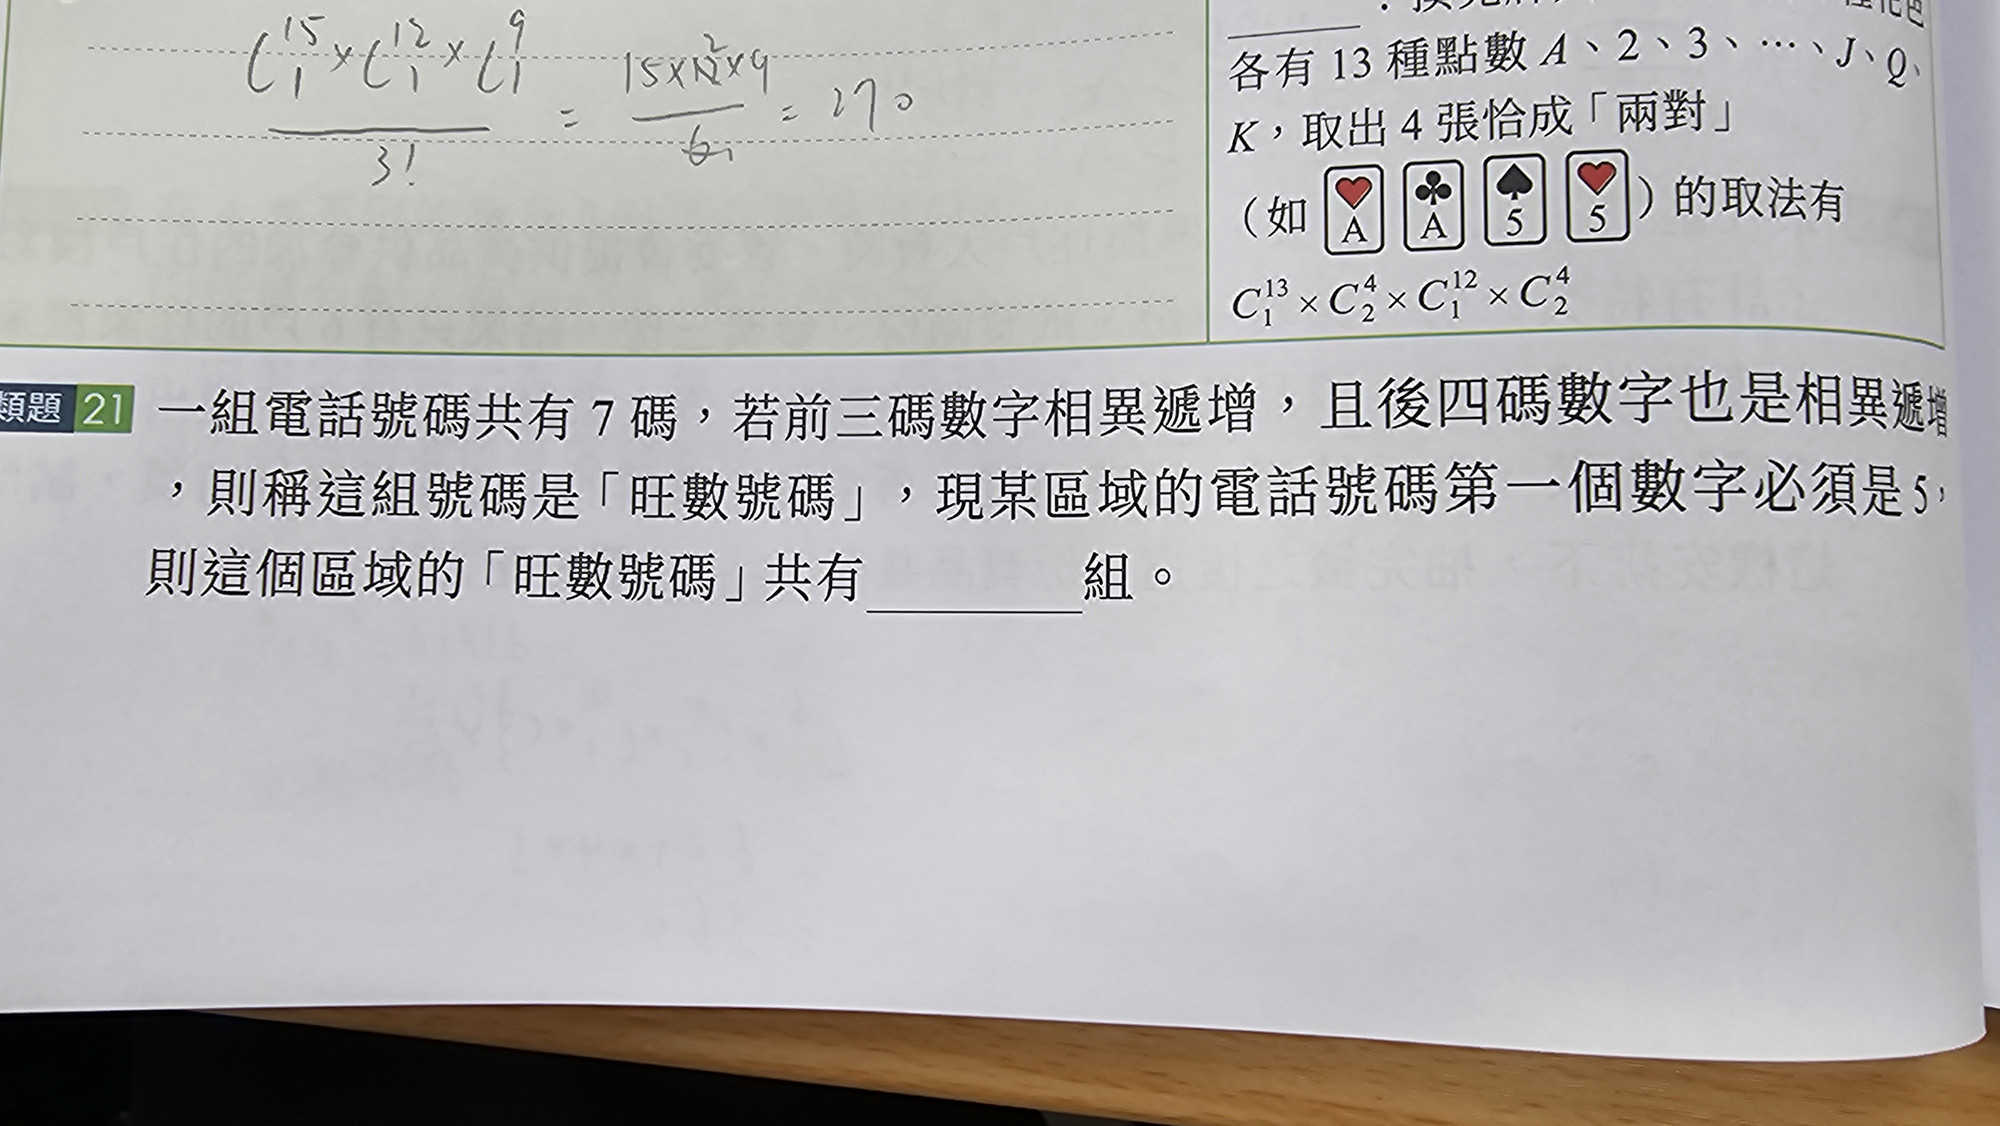 C₁¹⁵×C₁¹²×C₁⁹
───────── = 15×12²×9/6₁ = 270
3!
各有 13 種點數 A、2、3、…、J、Q、
K，取出 4 張恰成「兩對」
（如 ♥A ♣A ♠5 ♥5）的取法有
C₁¹³×C₂⁴×C₁¹²×C₂⁴
類題 21 一組電話號碼共有 7 碼，若前三碼數字相異遞增，且後四碼數字也是相異遞增
，則稱這組號碼是「旺數號碼」，現某區域的電話號碼第一個數字必須是 5，
則這個區域的「旺數號碼」共有________組。